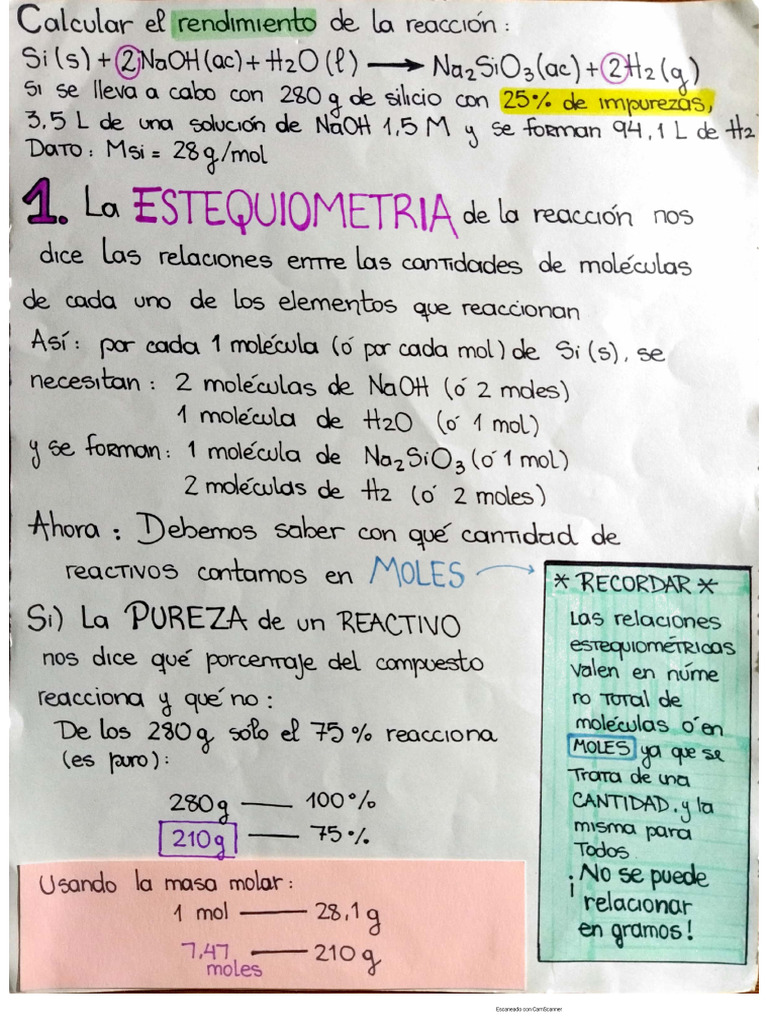 Calcular el rendimiento de la reacción:
Si(s) + 2NaOH(ac) + H2O(l) → Na2SiO3(ac) + 2H2(g)
Si se lleva a cabo con 280 g de silicio con 25% de impurezas,
3,5 L de una solución de NaOH 1,5 M y se forman 94,1 L de H2
Dato: Msi = 28g/mol
1. La ESTEQUIOMETRIA de la reacción nos
dice las relaciones entre las cantidades de moléculas
de cada uno de los elementos que reaccionan
Así: por cada 1 molécula (ó por cada mol) de Si(s), se
necesitan: 2 moléculas de NaOH (ó 2 moles)
1 molécula de H2O (ó 1 mol)
y se forman: 1 molécula de Na2SiO3 (ó 1 mol)
2 moléculas de H2 (ó 2 moles)
Ahora: Debemos saber con qué cantidad de
reactivos contamos en MOLES →
Si) La PUREZA de un REACTIVO
nos dice qué porcentaje del compuesto
reacciona y qué no:
De los 280g sólo el 75% reacciona
(es puro):
280g — 100%
210g — 75%
Usando la masa molar:
1 mol — 28,1 g
7,47 — 210 g
moles
* RECORDAR *
Las relaciones
estequiométricas
valen en núme
ro total de
moléculas ó en
MOLES ya que se
trata de una
CANTIDAD. y la
misma para
todos
¡No se puede
relacionar
en gramos!
Escaneado con CamScanner